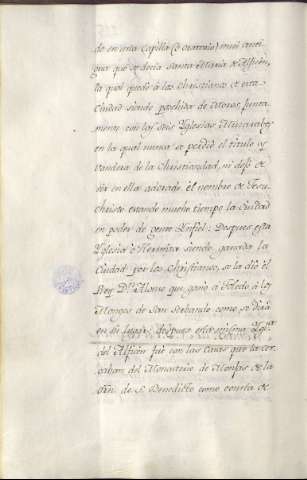 do en una Capilla (o oratorio) mui anti
gua que se decia Santa Maria de Alficén,
la qual quedó á los Christianos de esta
Ciudad siendo perdida de Moros junta
mente con las seis Yglesias Muzarabes,
en la qual nunca se perdió el titulo y
vandera de la Christiandad, ni dejó de
ser en ella adorado el nombre de Jesu
Christo estando mucho tiempo la Ciudad
en poder de gente Ynfiel: Despues esta
Yglesia ó Hermita siendo ganada la
Ciudad por los Christianos, se la dió el
Rey Dn. Alonso que ganó a Toledo á los
Monges de San Servando como se dirá
en su lugar; despues esta misma Yglª
del Alficén fué con las Casas que la cer
caban del Monasterio de Monjas de la
Orn. de S. Benedicto como consta de